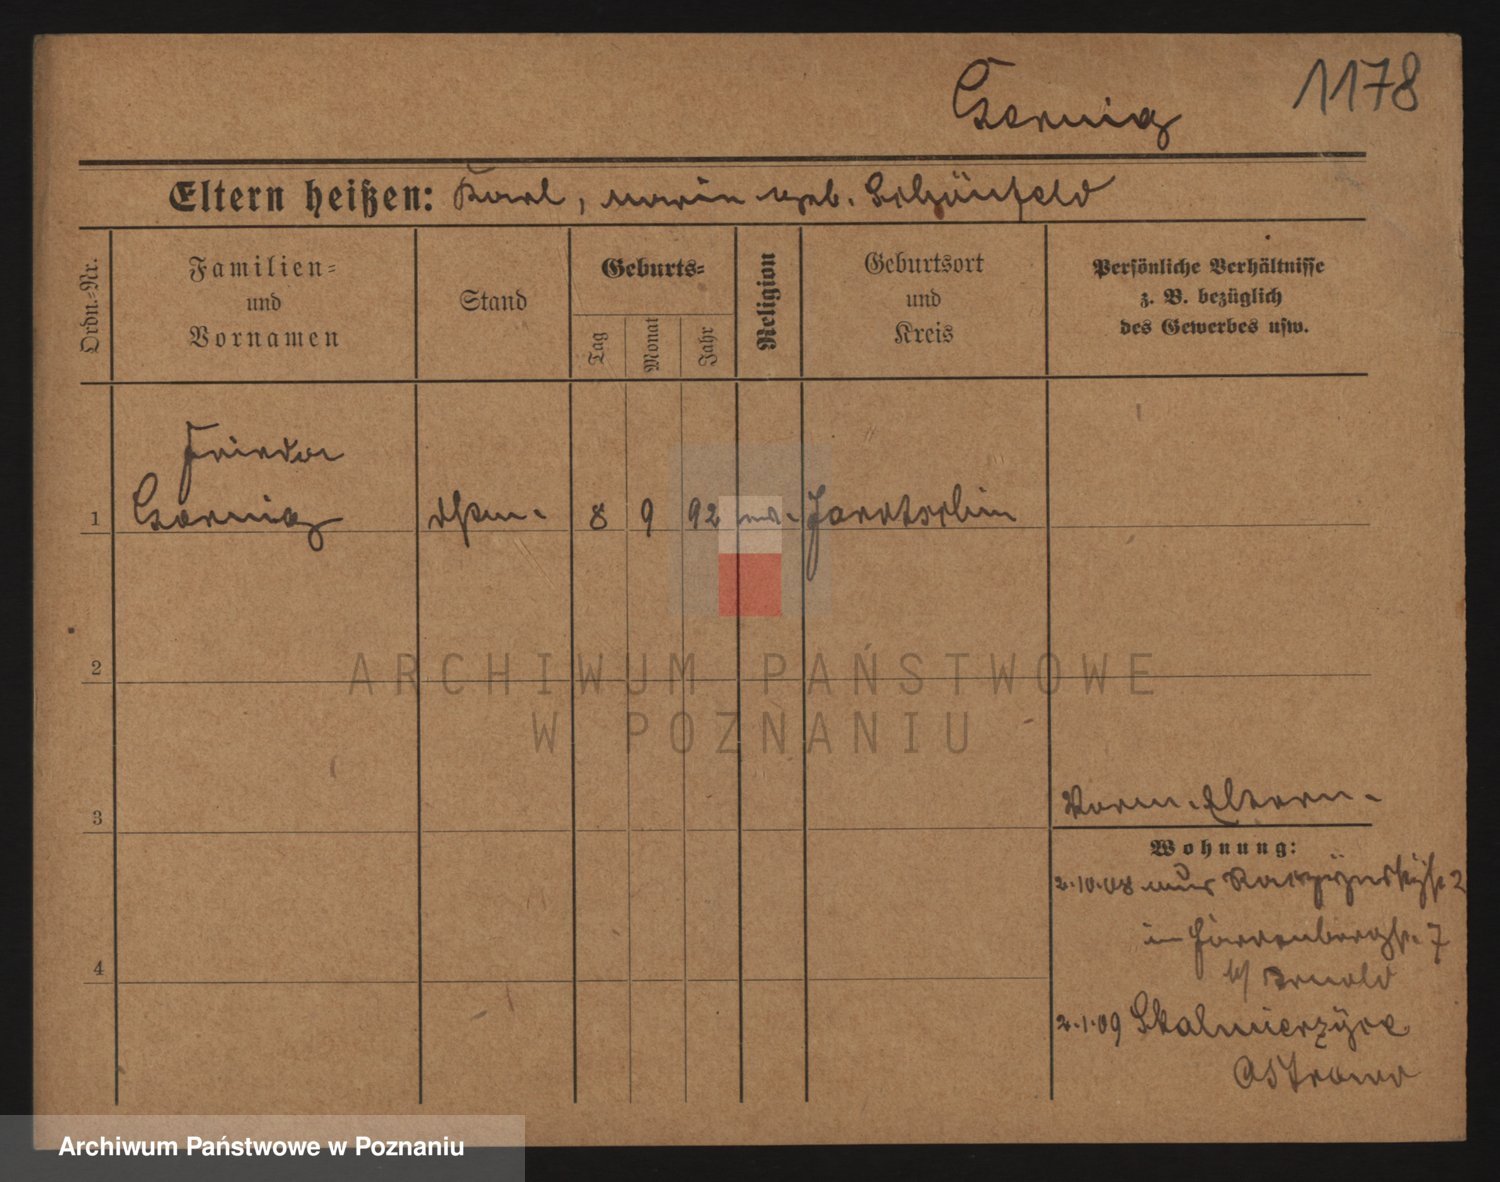 Czernig
1178
Eltern heißen: Karl, Marie geb. Schönfeld
Ordn.-Nr.
Familien-
und
Vornamen
Stand
Geburts-
Tag
Monat
Jahr
Religion
Geburtsort
und
Kreis
Persönliche Verhältnisse
z. B. bezüglich
des Gewerbes usw.
Frieda
1 Czernig
8 9 92
Jarotschin
2
ARCHIWUM PAŃSTWOWE
W POZNANIU
3
Vorm. Eltern.
Wohnung:
2.10.08 2
in 7
b/ Arnold
4
2.1.09 Skalmierzyce
Ostrowo
Archiwum Państwowe w Poznaniu